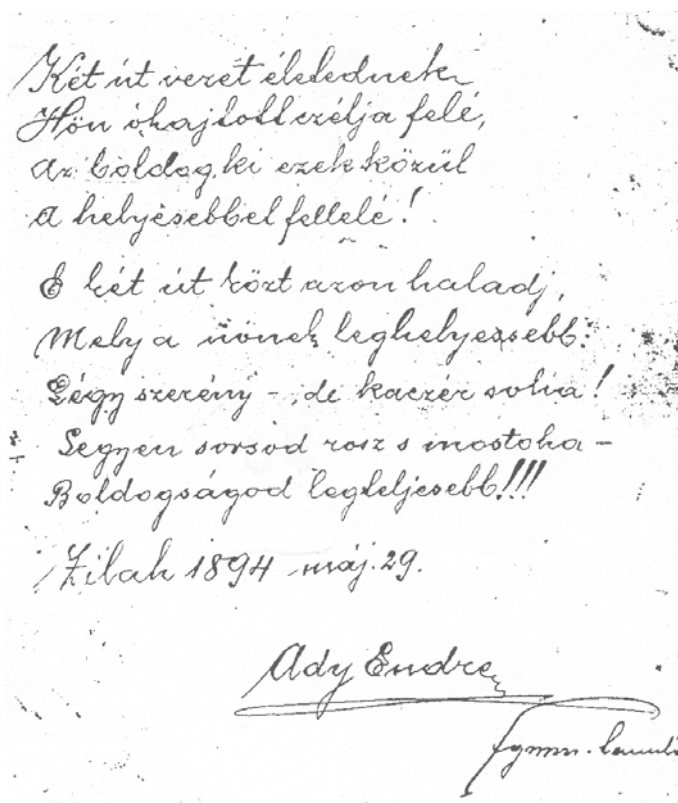 Két út vezet életednek
Hőn óhajtott czélja felé,
Az boldog, ki ezek közül
A helyesebbel fellelé!
E két út közt azon haladj,
Mely a nőnek leghelyesebb:
Légy szerény -, de kaczér soha!
Legyen sorsod rosz s mostoha -
Boldogságod legteljesebb!!!
Zilah 1894 máj. 29.
Ady Endre
fgymn.